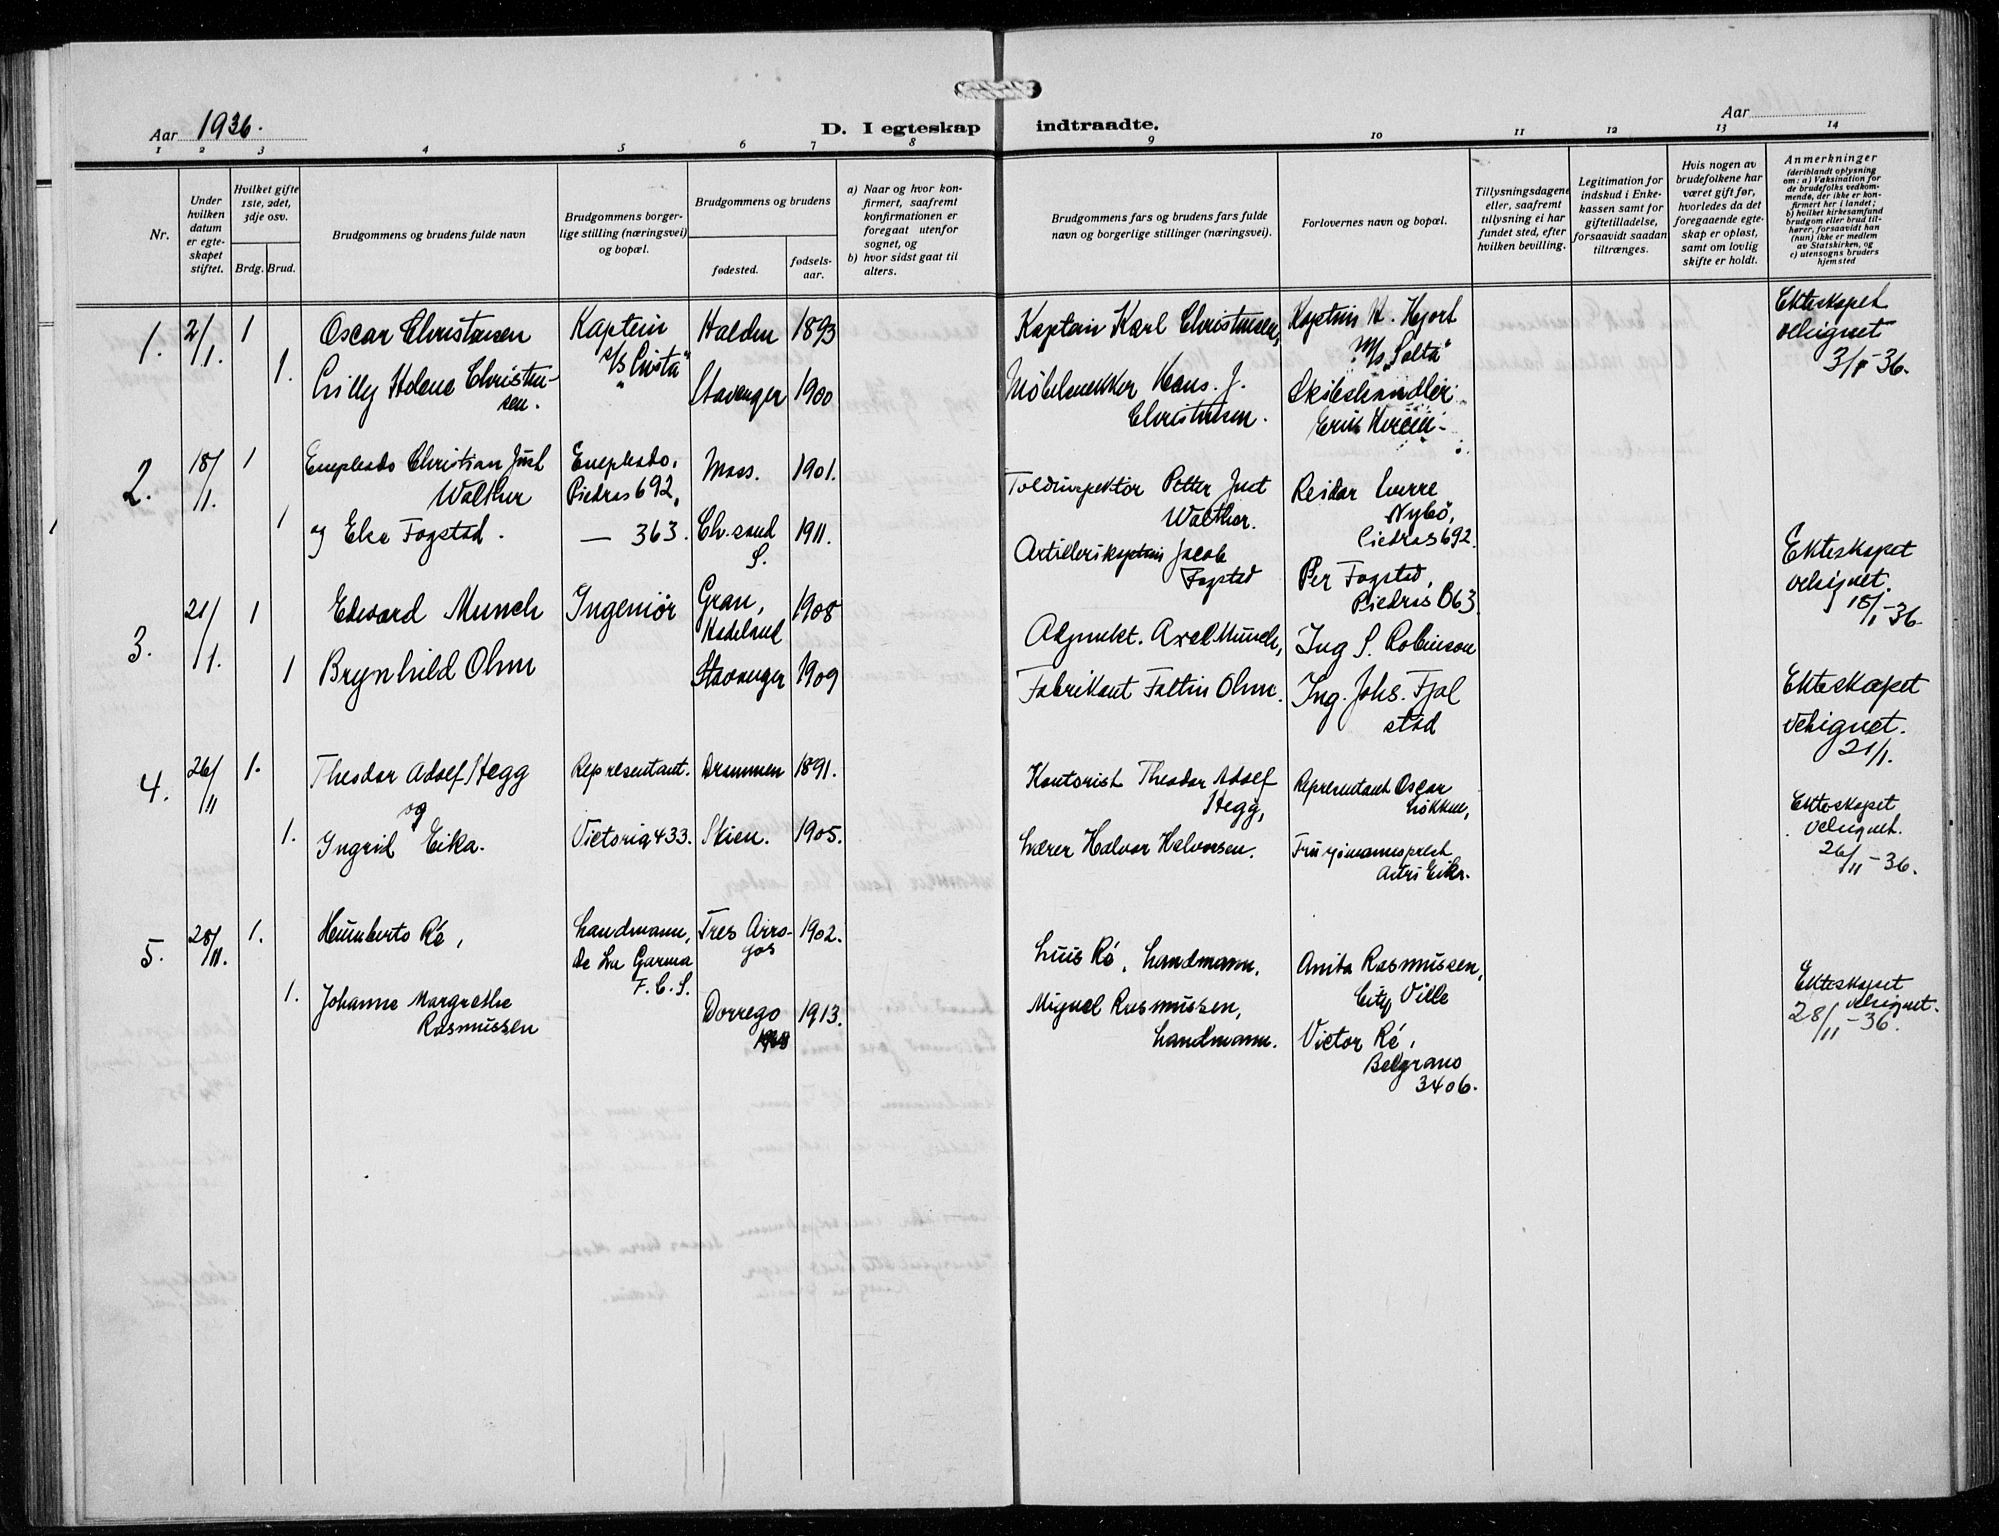 Aar 1936.
D. I egteskap indtraadte.
Aar
1 2 3 4 5 6 7 8 9 10 11 12 13 14
Nr.
Under hvilken datum er egteskapet stiftet.
Hvilket gifte 1ste, 2det, 3dje osv.
Brdg. Brud.
Brudgommens og brudens fulde navn
Brudgommens borgerlige stilling (næringsvei) og bopæl.
Brudgommens og brudens
fødested.
fødselsaar.
a) Naar og hvor konfirmert, saafremt konfirmationen er foregaat utenfor sognet, og
b) hvor sidst gaat til alters.
Brudgommens fars og brudens fars fulde navn og borgerlige stillinger (næringsvei).
Forlovernes navn og bopæl.
Tillysningsdagene eller, saafremt tillysning ei har fundet sted, efter hvilken bevilling.
Legitimation for indskud i Enkekassen samt for giftetilladelse, forsaavidt saadan tiltrænges.
Hvis nogen av brudefolkene har været gift før, hvorledes da det foregaaende egteskap er opløst, samt om lovlig skifte er holdt.
Anmerkninger (deriblandt oplysning om: a) Vaksination for de brudefolks vedkommende, der ikke er konfirmert her i landet; b) hvilket kirkesamfund brudgom eller brud tilhører, forsaavidt han (hun) ikke er medlem av Statskirken, og c) utensogns bruders hjemsted
1. 2/1. 1 Oscar Christensen Kaptein Halden 1893 Kaptein Karl Christensen, Kaptein H. Hjort M/s "Salta" Ekteskapet velsignet 3/1-36.
1. Lilly Helene Christensen. Stavanger 1900 Møbelsnekker Hans. J. Christensen. Skibshandler Erik
2. 18/1. 1 Enepleado Christian Just Walther Enepleado, Piedras 692, Moss. 1901. Toldinspektør Petter Just Walther. Reidar Sverre Nybø, Piedras 692.
1 og Else Fogstad. — 363. Ch.sand S. 1911. Artillerikaptein Jacob Fogstad Per Fogstad, Piedras 363. Ekteskapet velsignet. 18/1-36.
3. 21/1. 1 Edvard Munch Ingeniør Gran, Hadeland 1908 Adjunkt. Axel Munch, Ing S. Robinson
1 Brynhild Ohm Stavanger 1909 Fabrikant Faltin Ohm. Ing. Johs. Fjalstad Ekteskapet velsignet. 21/1.
4. 26/11 1. Theodor Adolf Hegg Representant. Drammen 1891. Kontorist Theodor Adolf Hegg, Representant Oscar Løkken,
og
1. Ingrid Eika. Victoria 433. Skien. 1905. Lærer Halvor Halvorsen. Fru sjømannsprest Astri Eika. Ekteskapet velsignet. 26/11-36.
5. 28/11. 1. Humberto Ré, Landmann, De La Garma F.C.S. Tres Arroyos 1902. Luis Ré, Landmann, Anita Rasmussen, City Ville
1. Johanne Margrethe Rasmussen Dorrego 1913. Miguel Rasmussen, Landmann. Victor Ré, Belgrano 3406. Ekteskapet velsignet. 28/11-36.